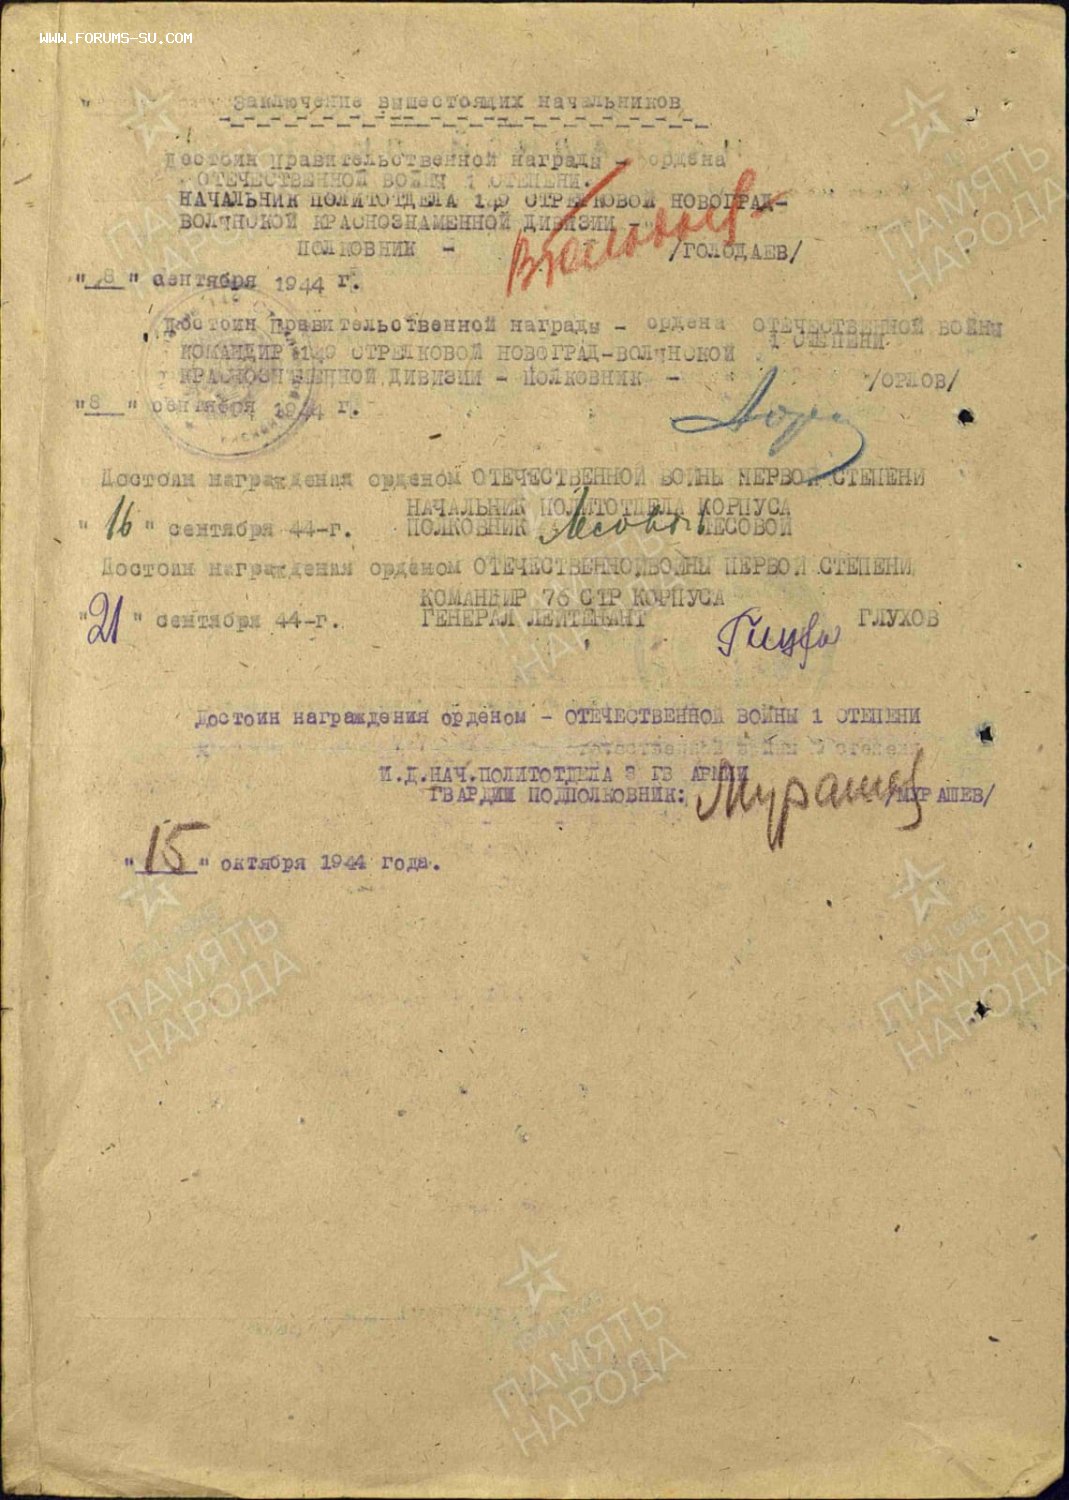 WWW.FORUMS-SU.COM
Заключение вышестоящих начальников
Достоин правительственной награды - ордена
ОТЕЧЕСТВЕННОЙ ВОЙНЫ 1 СТЕПЕНИ.
НАЧАЛЬНИК ПОЛИТОТДЕЛА 149 СТРЕЛКОВОЙ НОВОГРАД-
ВОЛЧНСКОЙ КРАСНОЗНАМЕННОЙ ДИВИЗИИ -
ПОЛКОВНИК - /ГОЛОДАЕВ/
"8" сентября 1944 г.
Достоин правительственной награды - ордена ОТЕЧЕСТВЕННОЙ ВОЙНЫ
1 СТЕПЕНИ
КОМАНДИР 149 СТРЕЛКОВОЙ НОВОГРАД-ВОЛЧНСКОЙ
ДИВИЗИИ - ПОЛКОВНИК - /ОРЛОВ/
"8" сентября 1944 г.
Достоин награждения орденом ОТЕЧЕСТВЕННОЙ ВОЙНЫ ПЕРВОЙ СТЕПЕНИ
НАЧАЛЬНИК ПОЛИТОТДЕЛА КОРПУСА
"16" сентября 44-г. ПОЛКОВНИК Лесовой ЛЕСОВОЙ
Достоин награждения орденом ОТЕЧЕСТВЕННОЙВОЙНЫ ПЕРВОЙ СТЕПЕНИ
КОМАНДИР 76 СТР КОРПУСА
"21" сентября 44-г. ГЕНЕРАЛ ЛЕЙТЕНАНТ ГЛУХОВ
Достоин награждения орденом - ОТЕЧЕСТВЕННОЙ ВОЙНЫ 1 СТЕПЕНИ
И.Д.НАЧ.ПОЛИТОТДЕЛА 3 ГВ АРМИИ
ГВАРДИИ ПОДПОЛКОВНИК: Мурашев /МУРАШЕВ/
"15" октября 1944 года.
ПАМЯТЬ
НАРОДА
ПАМЯТЬ
НАРОДА
ПАМЯТЬ
НАРОДА
ПАМЯТЬ
НАРОДА
ПАМЯТЬ
НАРОДА
ПАМЯТЬ
НАРОДА